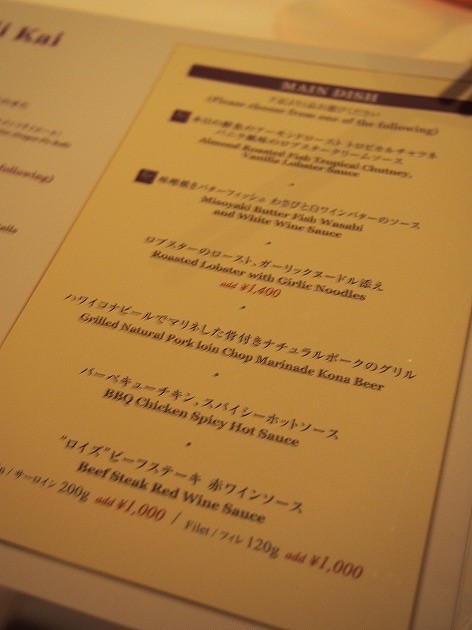 Kai
MAIN DISH
(Please choose from one of the following)
本日の鮮魚のアーモンドロースト トロピカルチャツネ
バニラ風味のロブスタークリームソース
Almond Roasted Fish Tropical Chutney,
Vanilla Lobster Sauce
味噌焼きバターフィッシュ わさびと白ワインバターのソース
Misoyaki Butter Fish Wasabi
and White Wine Sauce
ロブスターのロースト、ガーリックヌードル添え
Roasted Lobster with Girlic Noodles
add ¥1,400
ハワイコナビールでマリネした骨付きナチュラルポークのグリル
Grilled Natural Pork loin Chop Marinade Kona Beer
バーベキューチキン、スパイシーホットソース
BBQ Chicken Spicy Hot Sauce
"ロイズ"ビーフステーキ 赤ワインソース
Beef Steak Red Wine Sauce
/ サーロイン 200g add ¥1,000 / Filet / フィレ 120g add ¥1,000